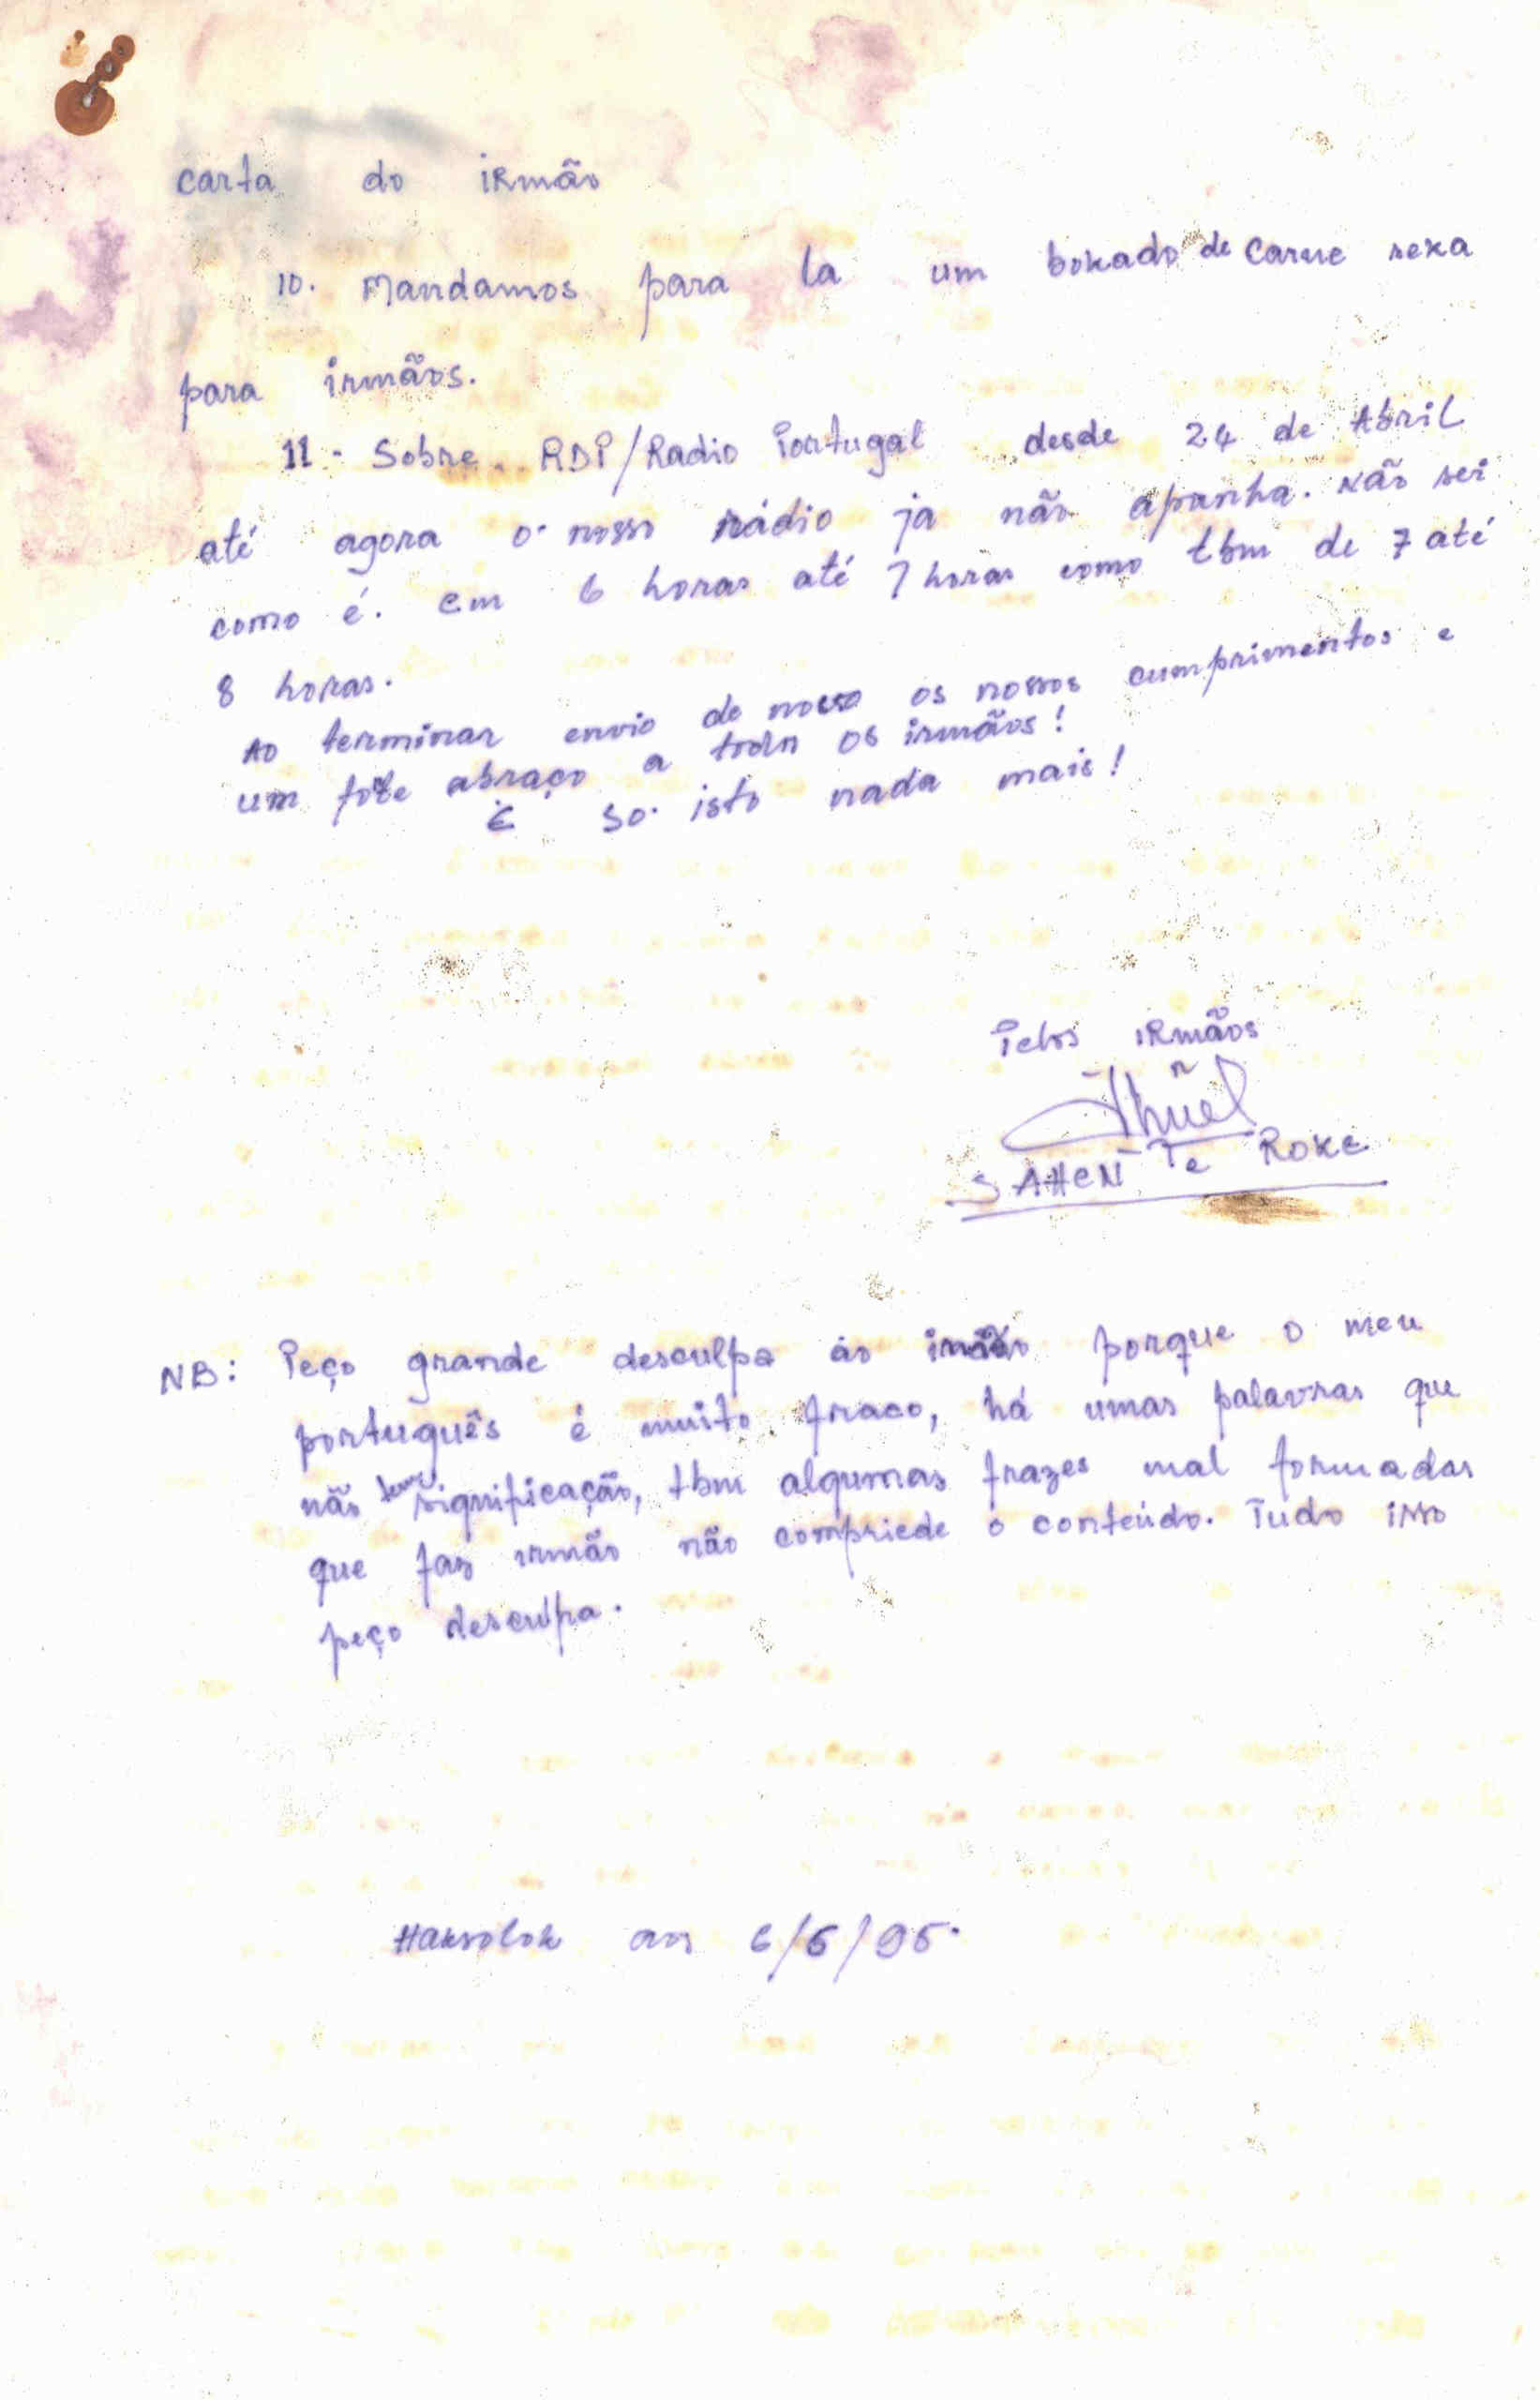 carta do irmão
10. Mandamos para la um bokado de carne seka
para irmãos.
11 - Sobre RDP/Radio Portugal desde 24 de Abril
até agora o nosso rádio ja não apanha. Não sei
como é. em 6 horas até 7 horas como tbm de 7 até
8 horas.
Ao terminar envio de nosso os nossos cumprimentos e
um fote abraço a todos os irmãos!
É so isto nada mais!
Pelos irmãos
SAHEN Te Roke
NB: Peço grande desculpa ao irmão porque o meu
português é muito fraco, há umas palavras que
não tem significação, tbm algumas frazes mal formadas
que faz irmão não compriede o conteúdo. Tudo isso
peço desculpa.
aos 6/5/95.